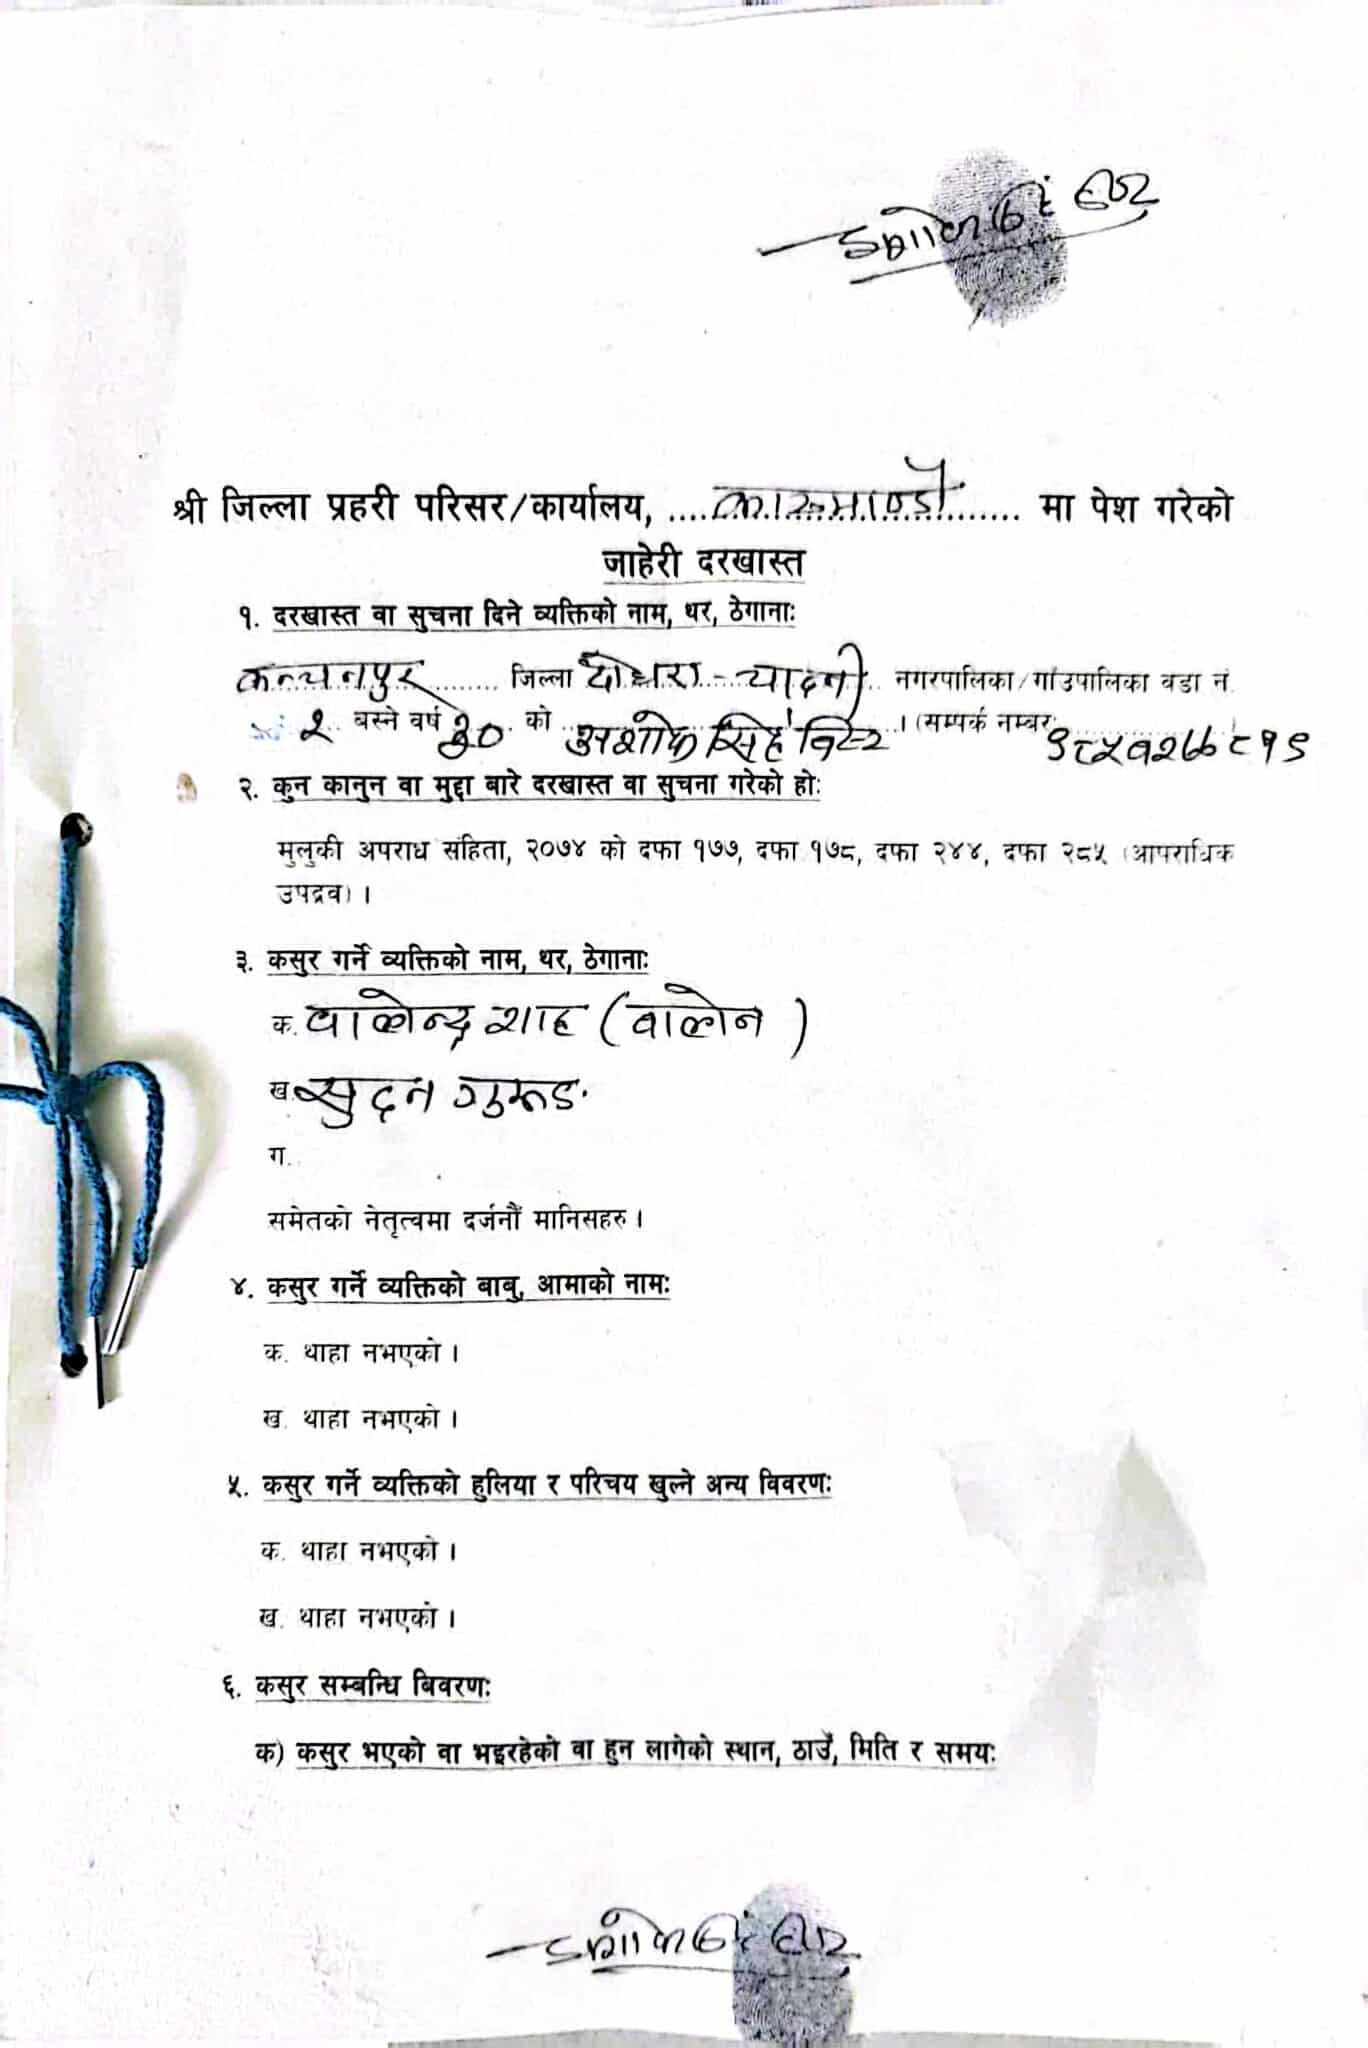 श्री जिल्ला प्रहरी परिसर/कार्यालय, काठमाण्डौ मा पेश गरेको
जाहेरी दरखास्त
१. दरखास्त वा सुचना दिने व्यक्तिको नाम, थर, ठेगानाः
कन्चनपुर जिल्ला दोधारा - चादनी नगरपालिका/गाउपालिका वडा नं.
२ बस्ने वर्ष ३० को अशोक सिंह विष्ट । (सम्पर्क नम्बर
२. कुन कानुन वा मुद्दा बारे दरखास्त वा सुचना गरेको होः
मुलुकी अपराध संहिता, २०७४ को दफा १७७, दफा १७८, दफा २४४, दफा २८५ (आपराधिक
उपद्रव) ।
३. कसुर गर्ने व्यक्तिको नाम, थर, ठेगानाः
क. वालेन्द्र शाह (वालेन)
ख. सुदन गुरूङ
ग.
समेतको नेतृत्वमा दर्जनौं मानिसहरु ।
४. कसुर गर्ने व्यक्तिको बाबु, आमाको नामः
क. थाहा नभएको ।
ख. थाहा नभएको ।
५. कसुर गर्ने व्यक्तिको हुलिया र परिचय खुल्ने अन्य विवरणः
क. थाहा नभएको ।
ख. थाहा नभएको ।
६. कसुर सम्बन्धि विवरणः
क) कसुर भएको वा भइरहेको वा हुन लागेको स्थान, ठाउँ, मिति र समयः